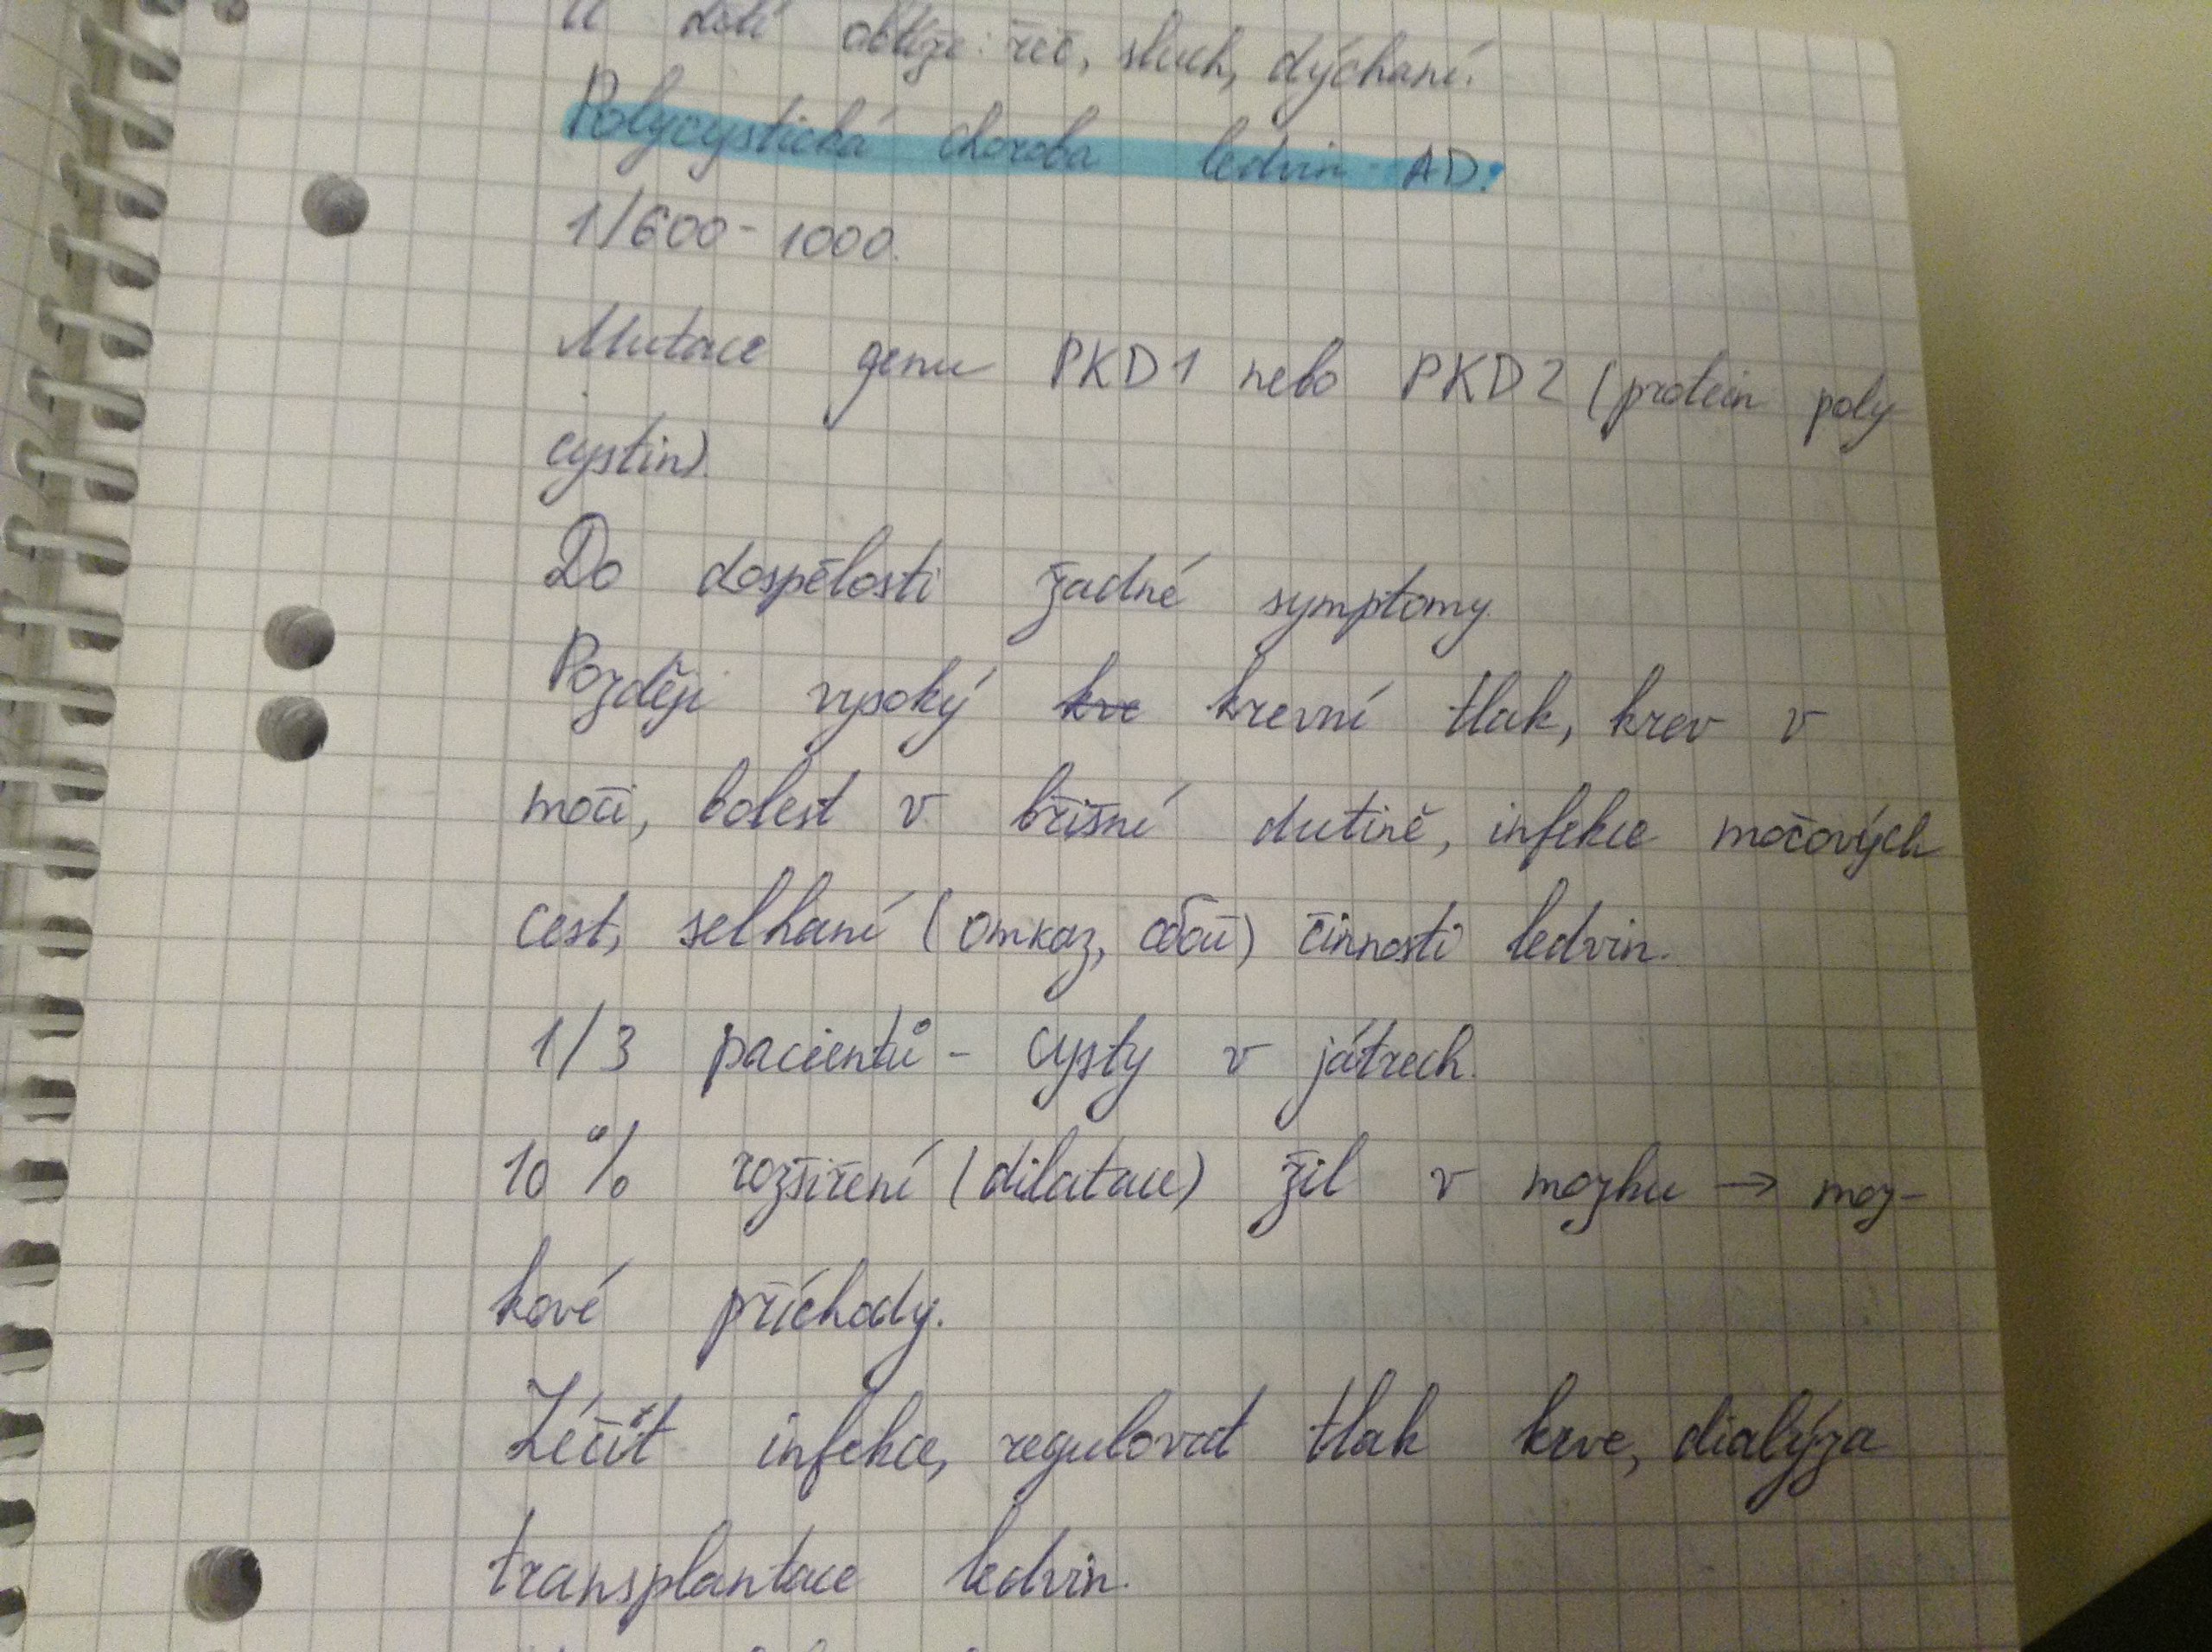 U dětí obtíže: řeč, sluch, dýchaní.
Polycystická choroba ledvin - AD:
1/600 - 1000.
Mutace genu PKD1 nebo PKD2 (protein poly
cystin).
Do dospělosti žadné symptomy.
Později vysoký kre krevní tlak, krev v
moči, bolest v břišné dutině, infekce močových
cest, selhaní (отказ, сбои) činnosti ledvin.
1/3 pacientů - cysty v játrech.
10 % rozšíření (dilatace) žil v mozku → moz-
kové příchody.
Léčit infekce, regulovat tlak krve, dialýza
transplantace ledvin.